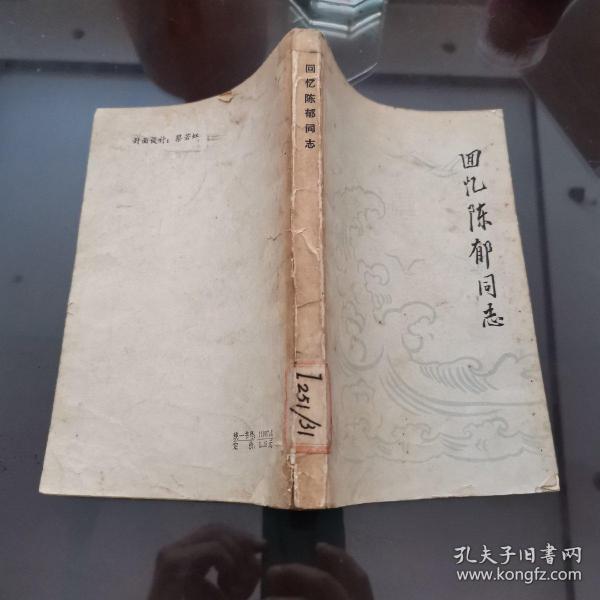 回忆陈郁同志
回忆陈郁同志
封面设计：
I251/31
统一书号：
定 价：
孔夫子旧书网
www.kongfz.com